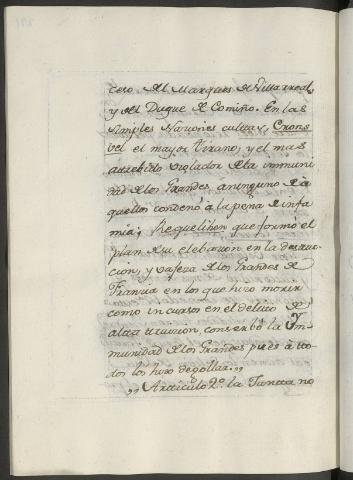 cero del Marques de Villarreal,
y del Duque de Comiño. En las
simples Naciones cultas, Crons
vel el mayor Tirano, y el mas
atrebido violador de la inmuni
dad de los Grandes, a ninguno de a
quellos condenó à la pena de infa
mia; Requelihen que formó el
plan de su elebacion en la destruc
cion, y vageza de los Grandes de
Francia en los que hizo morir
como incursos en el delito de
alta traicion, conserbó la Im
munidad de los Grandes pues à to
dos los hizo degollar.,,
,, Articulo 2º. la Juntta no